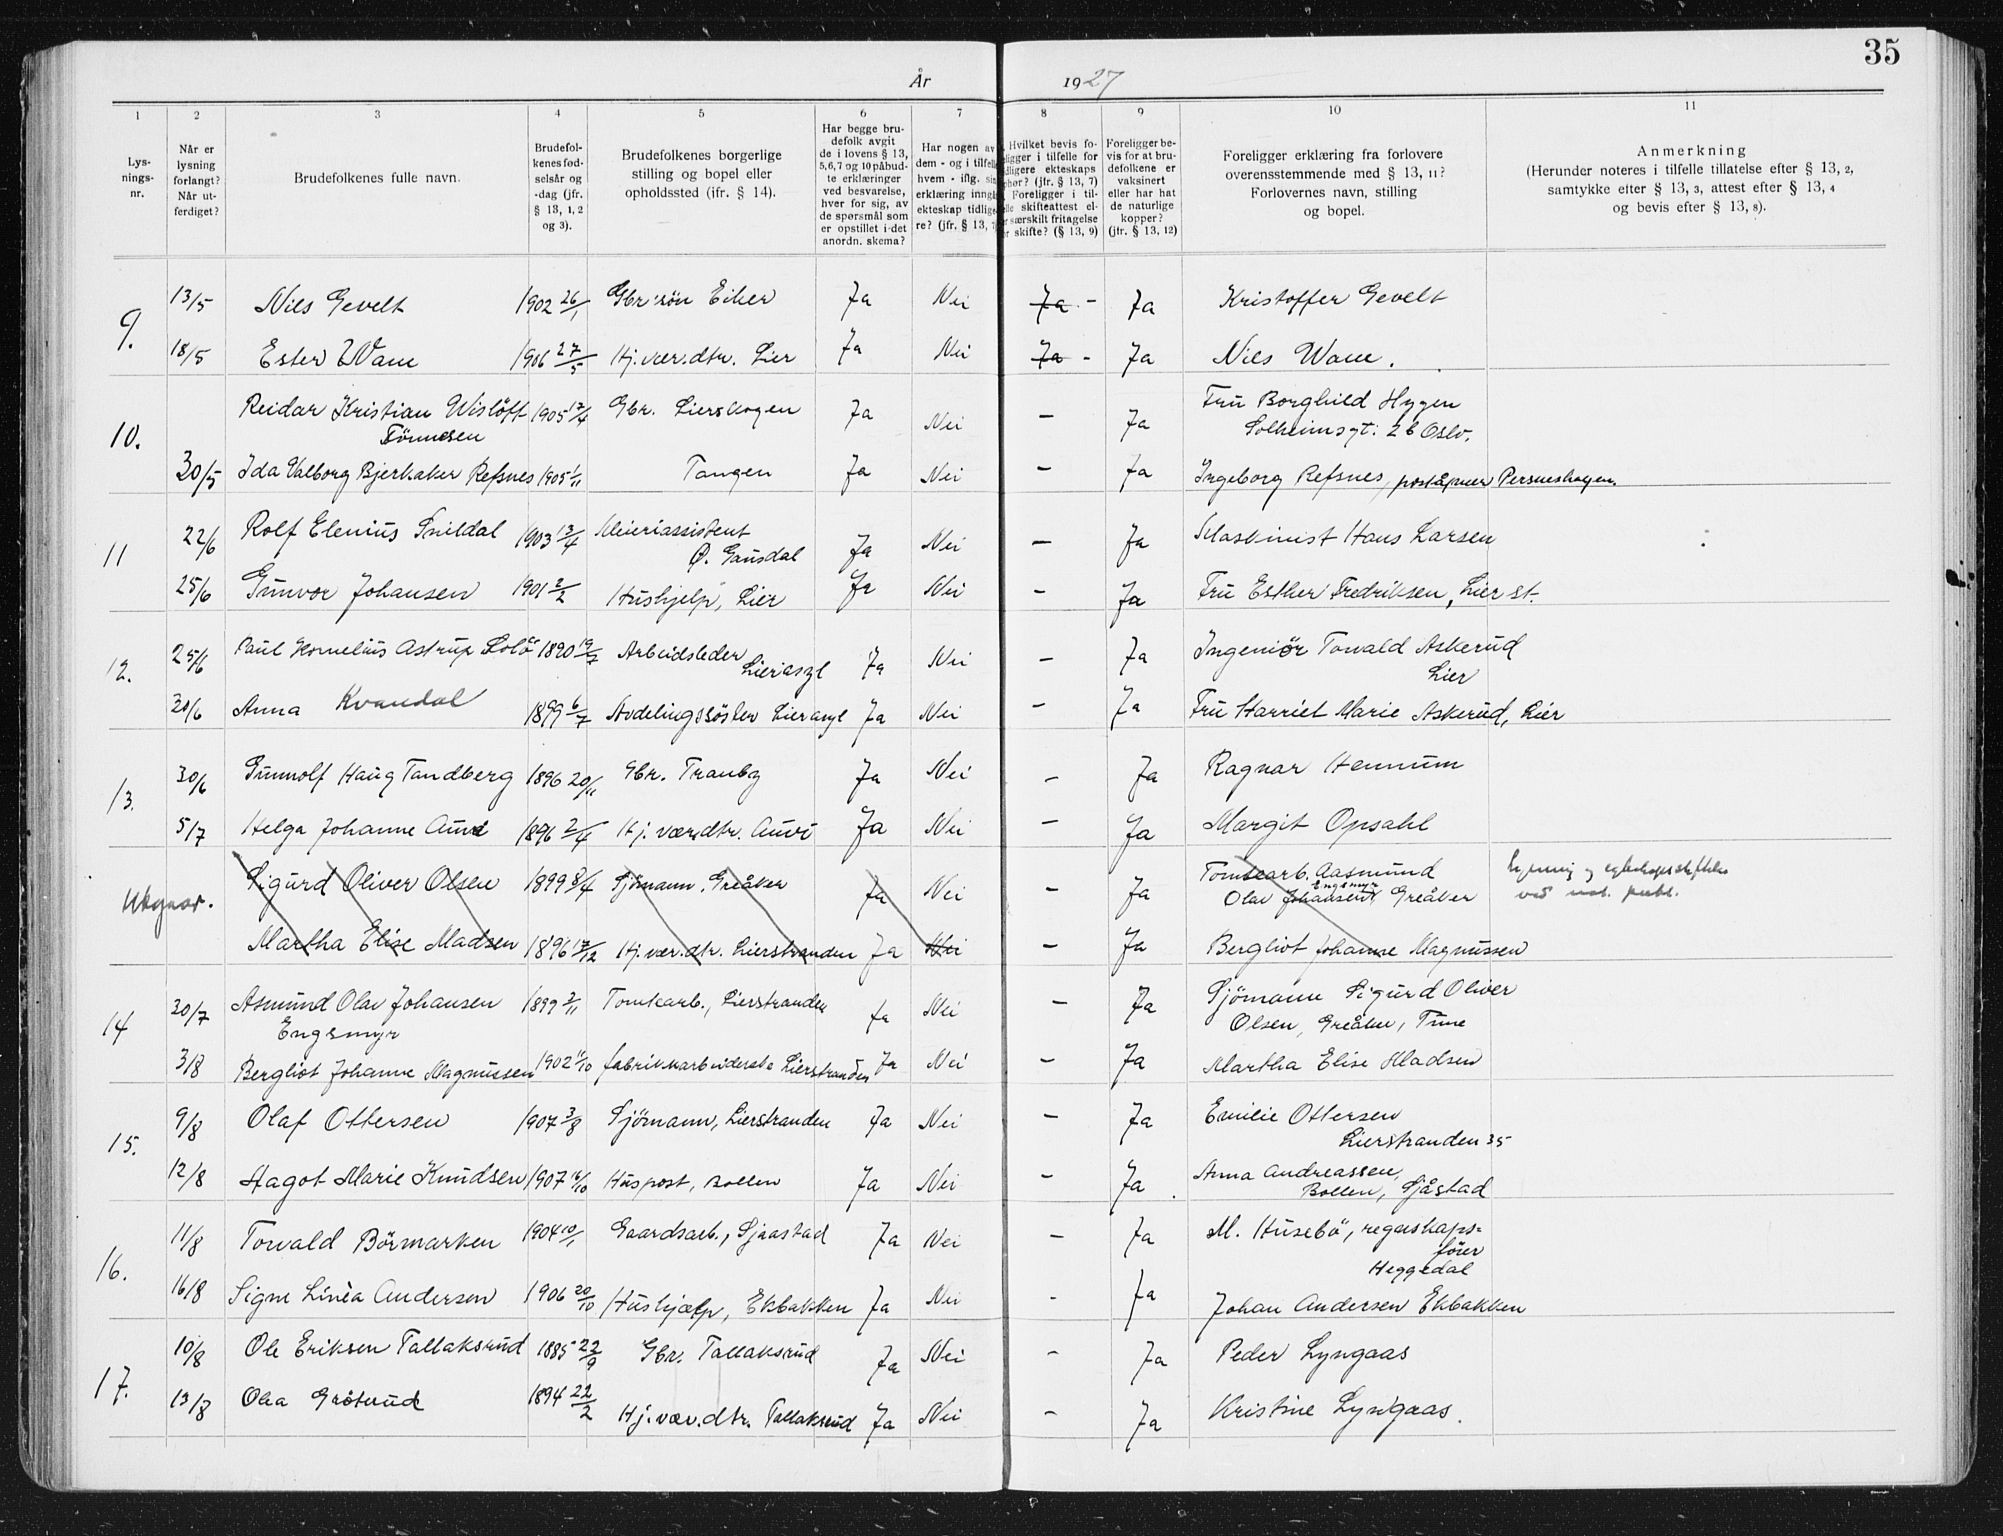 35
År 1927
1 2 3 4 5 6 7 8 9 10 11
Lys-
nings-
nr.
Når er
lysning
forlangt?
Når ut-
ferdiget?
Brudefolkenes fulle navn.
Brudefol-
kenes fød-
selsår og
-dag (jfr.
§ 13, 1, 2
og 3).
Brudefolkenes borgerlige
stilling og bopel eller
opholdssted (ifr. § 14).
Har begge bru-
defolk avgit
de i lovens § 13,
5,6,7 og 10 påbud-
te erklæringer
ved besvarelse,
hver for sig, av
de spørsmål som
er opstillet i det
anordn. skema?
Har nogen av
dem - og i tilfelle
hvem - iflg. sin
erklæring inngå
ekteskap tidlige
re? (jfr. § 13, 7
Hvilket bevis fo-
eligger i tilfelle for
idligere ekteskaps
phør? (jfr. § 13, 7)
Foreligger i til-
elle skifteattest el-
er særskilt fritagelse
or skifte? (§ 13, 9)
Foreligger be-
vis for at bru-
defolkene er
vaksinert
eller har hat
de naturlige
kopper?
(jfr. § 13, 12)
Foreligger erklæring fra forlovere
overensstemmende med § 13, 11?
Forlovernes navn, stilling
og bopel.
Anmerkning
(Herunder noteres i tilfelle tillatelse efter § 13, 2,
samtykke efter § 13, 3, attest efter § 13, 4
og bevis efter § 13, 8).
9. 13/5 Nils Gevelt 1902 26/1 Gbr.søn Eiker Ja Nei Ja - Ja Kristoffer Gevelt
18/5 Ester Wam 1906 27/5 Hj.vær.dtr. Lier Ja Nei Ja - Ja Nils Wam.
10. Reidar Kristian Wislöff 1905 17/4 Gbr. Lierskogen Ja Nei - Ja Fru Borghild Hygen
Tönnesen Solheimsgt: 2 b Oslo.
30/5 Ida Valborg Bjerkaker Refsnes 1905 1/11 Tangen Ja Nei - Ja Ingeborg Refsnes, poståpner Persneskogen.
11 22/6 Rolf Elenius Snildal 1903 13/4 Meieriassistent
Ø. Gausdal Ja Nei - Ja Maskinist Hans Larsen
25/6 Gunvor Johansen 1901 2/2 Hushjelp, Lier Ja Nei - Ja Fru Esther Fredriksen, Lier st.
12. 25/6 Paul Kornelius Astrup Solö 1890 19/7 Arbeidsleder
Lierasyl Ja Nei - Ja Ingeniör Torvald Askerud
Lier
30/6 Anna Kvandal 1899 6/7 Avdelingssöster Lierasyl Ja Nei - Ja Fru Harriet Marie Askerud, Lier
13. 30/6 Gunnolf Haug Tandberg 1896 20/11 Gbr. Tranby Ja Nei - Ja Ragnar Hennum
5/7 Helga Johanne Auve 1896 2/4 Hj. vær.dtr. Auvi Ja Nei - Ja Margit Opsahl
Sigurd Oliver Olsen 1899 8/4 Sjömann, Greåker Ja Nei - Ja Tomtearb. Aasmund
Engsmyr
Olav Johansen Greåker
ved not. publ.
Martha Elise Madsen 1896 17/12 Hj.vær.dtr. Lierstranden Ja Nei - Ja Bergliot Johanne Magnussen
14 30/7 Asmund Olav Johansen 1899 2/11 Tomtearb., Lierstranden Ja Nei - Ja Sjömann Sigurd Oliver
Engsmyr Olsen, Greåker, Tune
3/8 Bergliot Johanne Magnussen 1902 11/10 fabrikkarbeiderske Lierstranden Ja Nei - Ja Martha Elise Madsen
15. 9/8 Olaf Ottersen 1907 3/8 Sjömann, Lierstranden Ja Nei - Ja Emilie Ottersen
Lierstranden 35
12/8 Hagot Marie Knudsen 1907 16/10 Huspost, Bollen Ja Nei - Ja Anna Andreassen,
Bollen, Sjåstad
16. 11/8 Torvald Börmarken 1904 10/1 Gaardsarb., Sjaastad Ja Nei - Ja M. Husebö, regnskaps-
förer
Heggedal
16/8 Signe Linèa Andersen 1906 20/10 Hushjælp, Ekbakken Ja Nei - Ja Johan Andersen Ekbakken
17. 10/8 Ole Eriksen Tallaksrud 1885 22/9 Gbr. Tallaksrud Ja Nei - Ja Peder Lyngaas
13/8 Olea Gröterud 1894 22/2 Hj.vær.dtr. Tallaksrud Ja Nei - Ja Kristine Lyngaas.